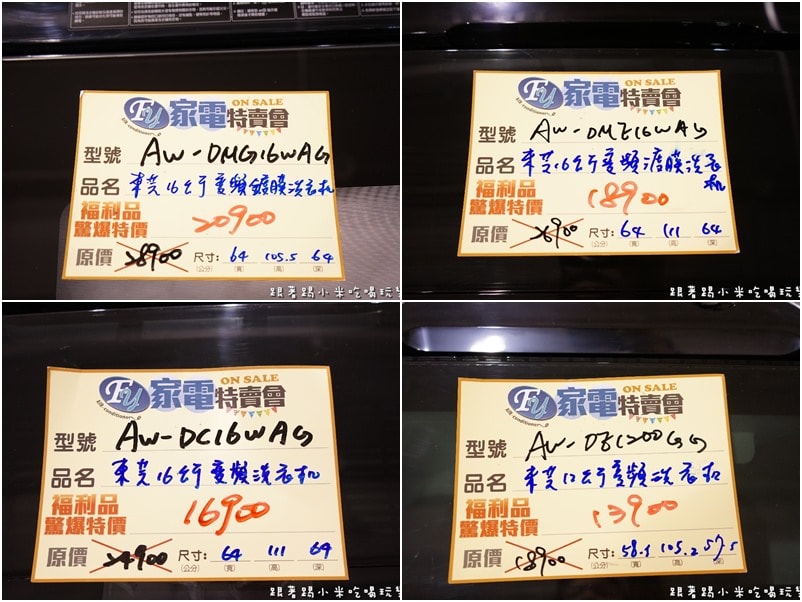 FU 家電特賣會 ON SALE
型號 AW-DMG16WAG
品名 東芝16公斤變頻鍍膜洗衣机
福利品
驚爆特價 20900
原價 28900 尺寸: 64 105.5 64
(公分) (寬) (高) (深)
跟著踢小米吃喝玩樂
FU 家電特賣會 ON SALE
型號 AW-DME16WAG
品名 東芝16公斤變頻渡膜洗衣机
福利品
驚爆特價 18900
原價 26900 尺寸: 64 111 64
(公分) (寬) (高) (深)
跟著踢小米吃喝玩樂
FU 家電特賣會 ON SALE
型號 AW-DC16WAG
品名 東芝16公斤變頻洗衣机
福利品
驚爆特價 16900
原價 24900 尺寸: 64 111 64
(公分) (寬) (高) (深)
跟著踢小米吃喝玩樂
FU 家電特賣會 ON SALE
型號
品名 東芝12公斤變頻洗衣机
福利品
驚爆特價 13900
原價 18900 尺寸: 58.5 105.2 57.5
(公分) (寬) (高) (深)
跟著踢小米吃喝玩樂